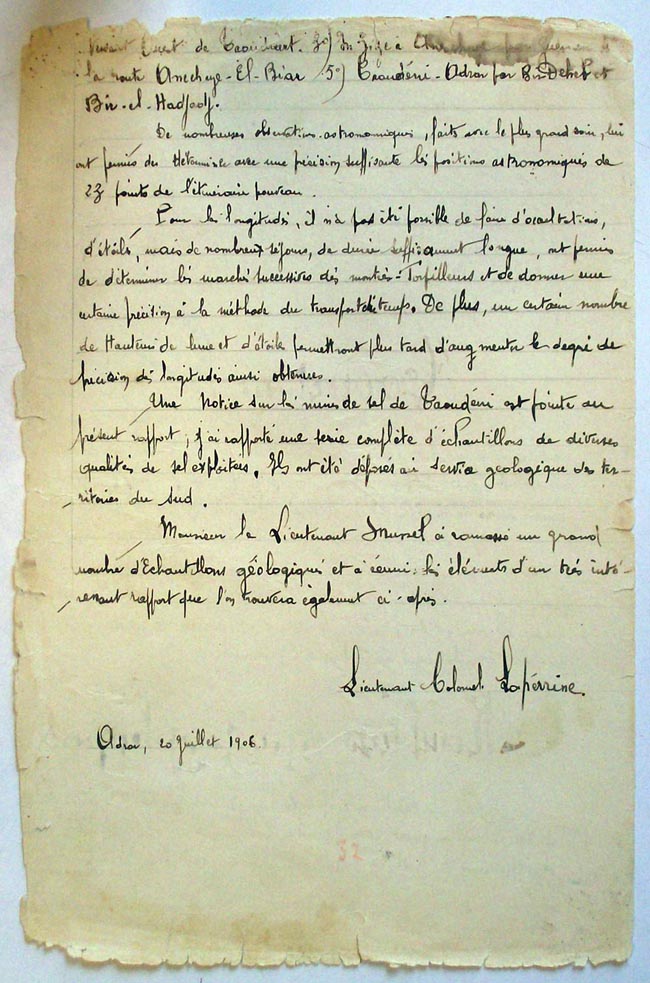 Versant Ouest de Taoudenni. 3°) du Tizi à
la route Anechaye-El-Biar 5°) Taoudéni-Adrar par Bir Deheb et
Bir-el-Hadjadj.
De nombreuses observations astronomiques, faites avec le plus grand soin, lui
ont permis de déterminer avec une précision suffisante les positions astronomiques de
23 points de l'itinéraire nouveau.
Pour les longitudes, il n'a pas été possible de faire d'occultations,
d'étoiles, mais de nombreux séjours, de durée suffisamment longue, ont permis
de déterminer les marches successives des montres-Torpilleurs et de donner une
certaine précision à la méthode du transport du temps. De plus, un certain nombre
de Hauteurs de lune et d'étoile permettront plus tard d'augmenter le degré de
précision des longitudes ainsi obtenues.
Une Notice sur les mines de sel de Taoudéni est jointe au
présent rapport; j'ai rapporté une serie complète d'échantillons de diverses
qualités de sel exploitées. Ils ont été déposés au service geologique des ter-
ritoires du sud.
Monsieur le Lieutenant Mussel a ramassé un grand
nombre d'Echantillons géologiques et a réuni les éléments d'un très inté-
ressant rapport que l'on trouvera également ci-après.
Lieutenant Colonel Lapérrine.
Adrar, 20 Juillet 1906.
32